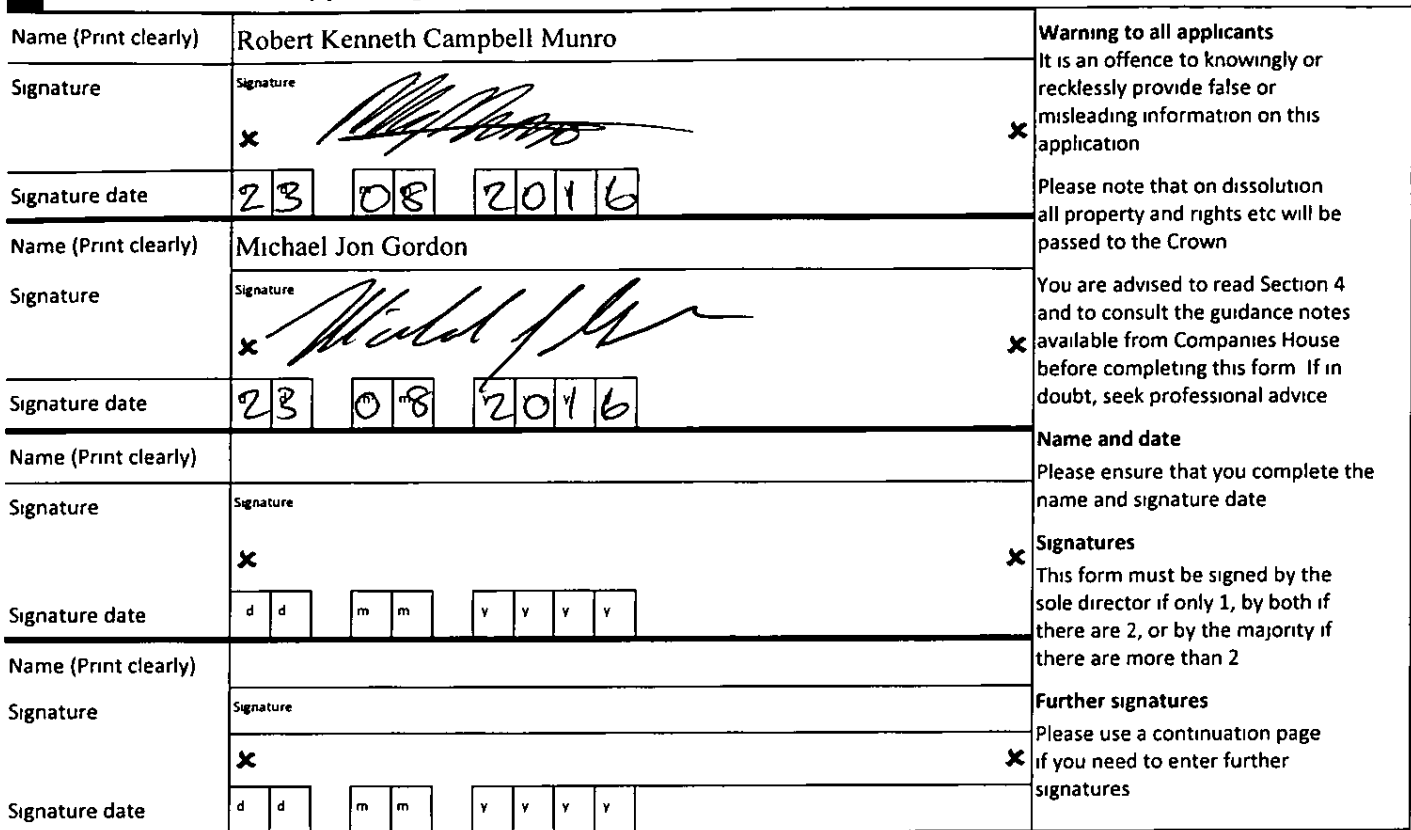 Name (Print clearly) Robert Kenneth Campbell Munro
Signature
Signature
x x
Signature date 23 08 2016
Name (Print clearly) Michael Jon Gordon
Signature
Signature
x x
Signature date 23 08 2016
Name (Print clearly)
Signature
Signature
x x
Signature date d d m m y y y y
Name (Print clearly)
Signature
Signature
x x
Signature date d d m m y y y y
Warning to all applicants
It is an offence to knowingly or
recklessly provide false or
misleading information on this
application
Please note that on dissolution
all property and rights etc will be
passed to the Crown
You are advised to read Section 4
and to consult the guidance notes
available from Companies House
before completing this form If in
doubt, seek professional advice
Name and date
Please ensure that you complete the
name and signature date
Signatures
This form must be signed by the
sole director if only 1, by both if
there are 2, or by the majority if
there are more than 2
Further signatures
Please use a continuation page
if you need to enter further
signatures